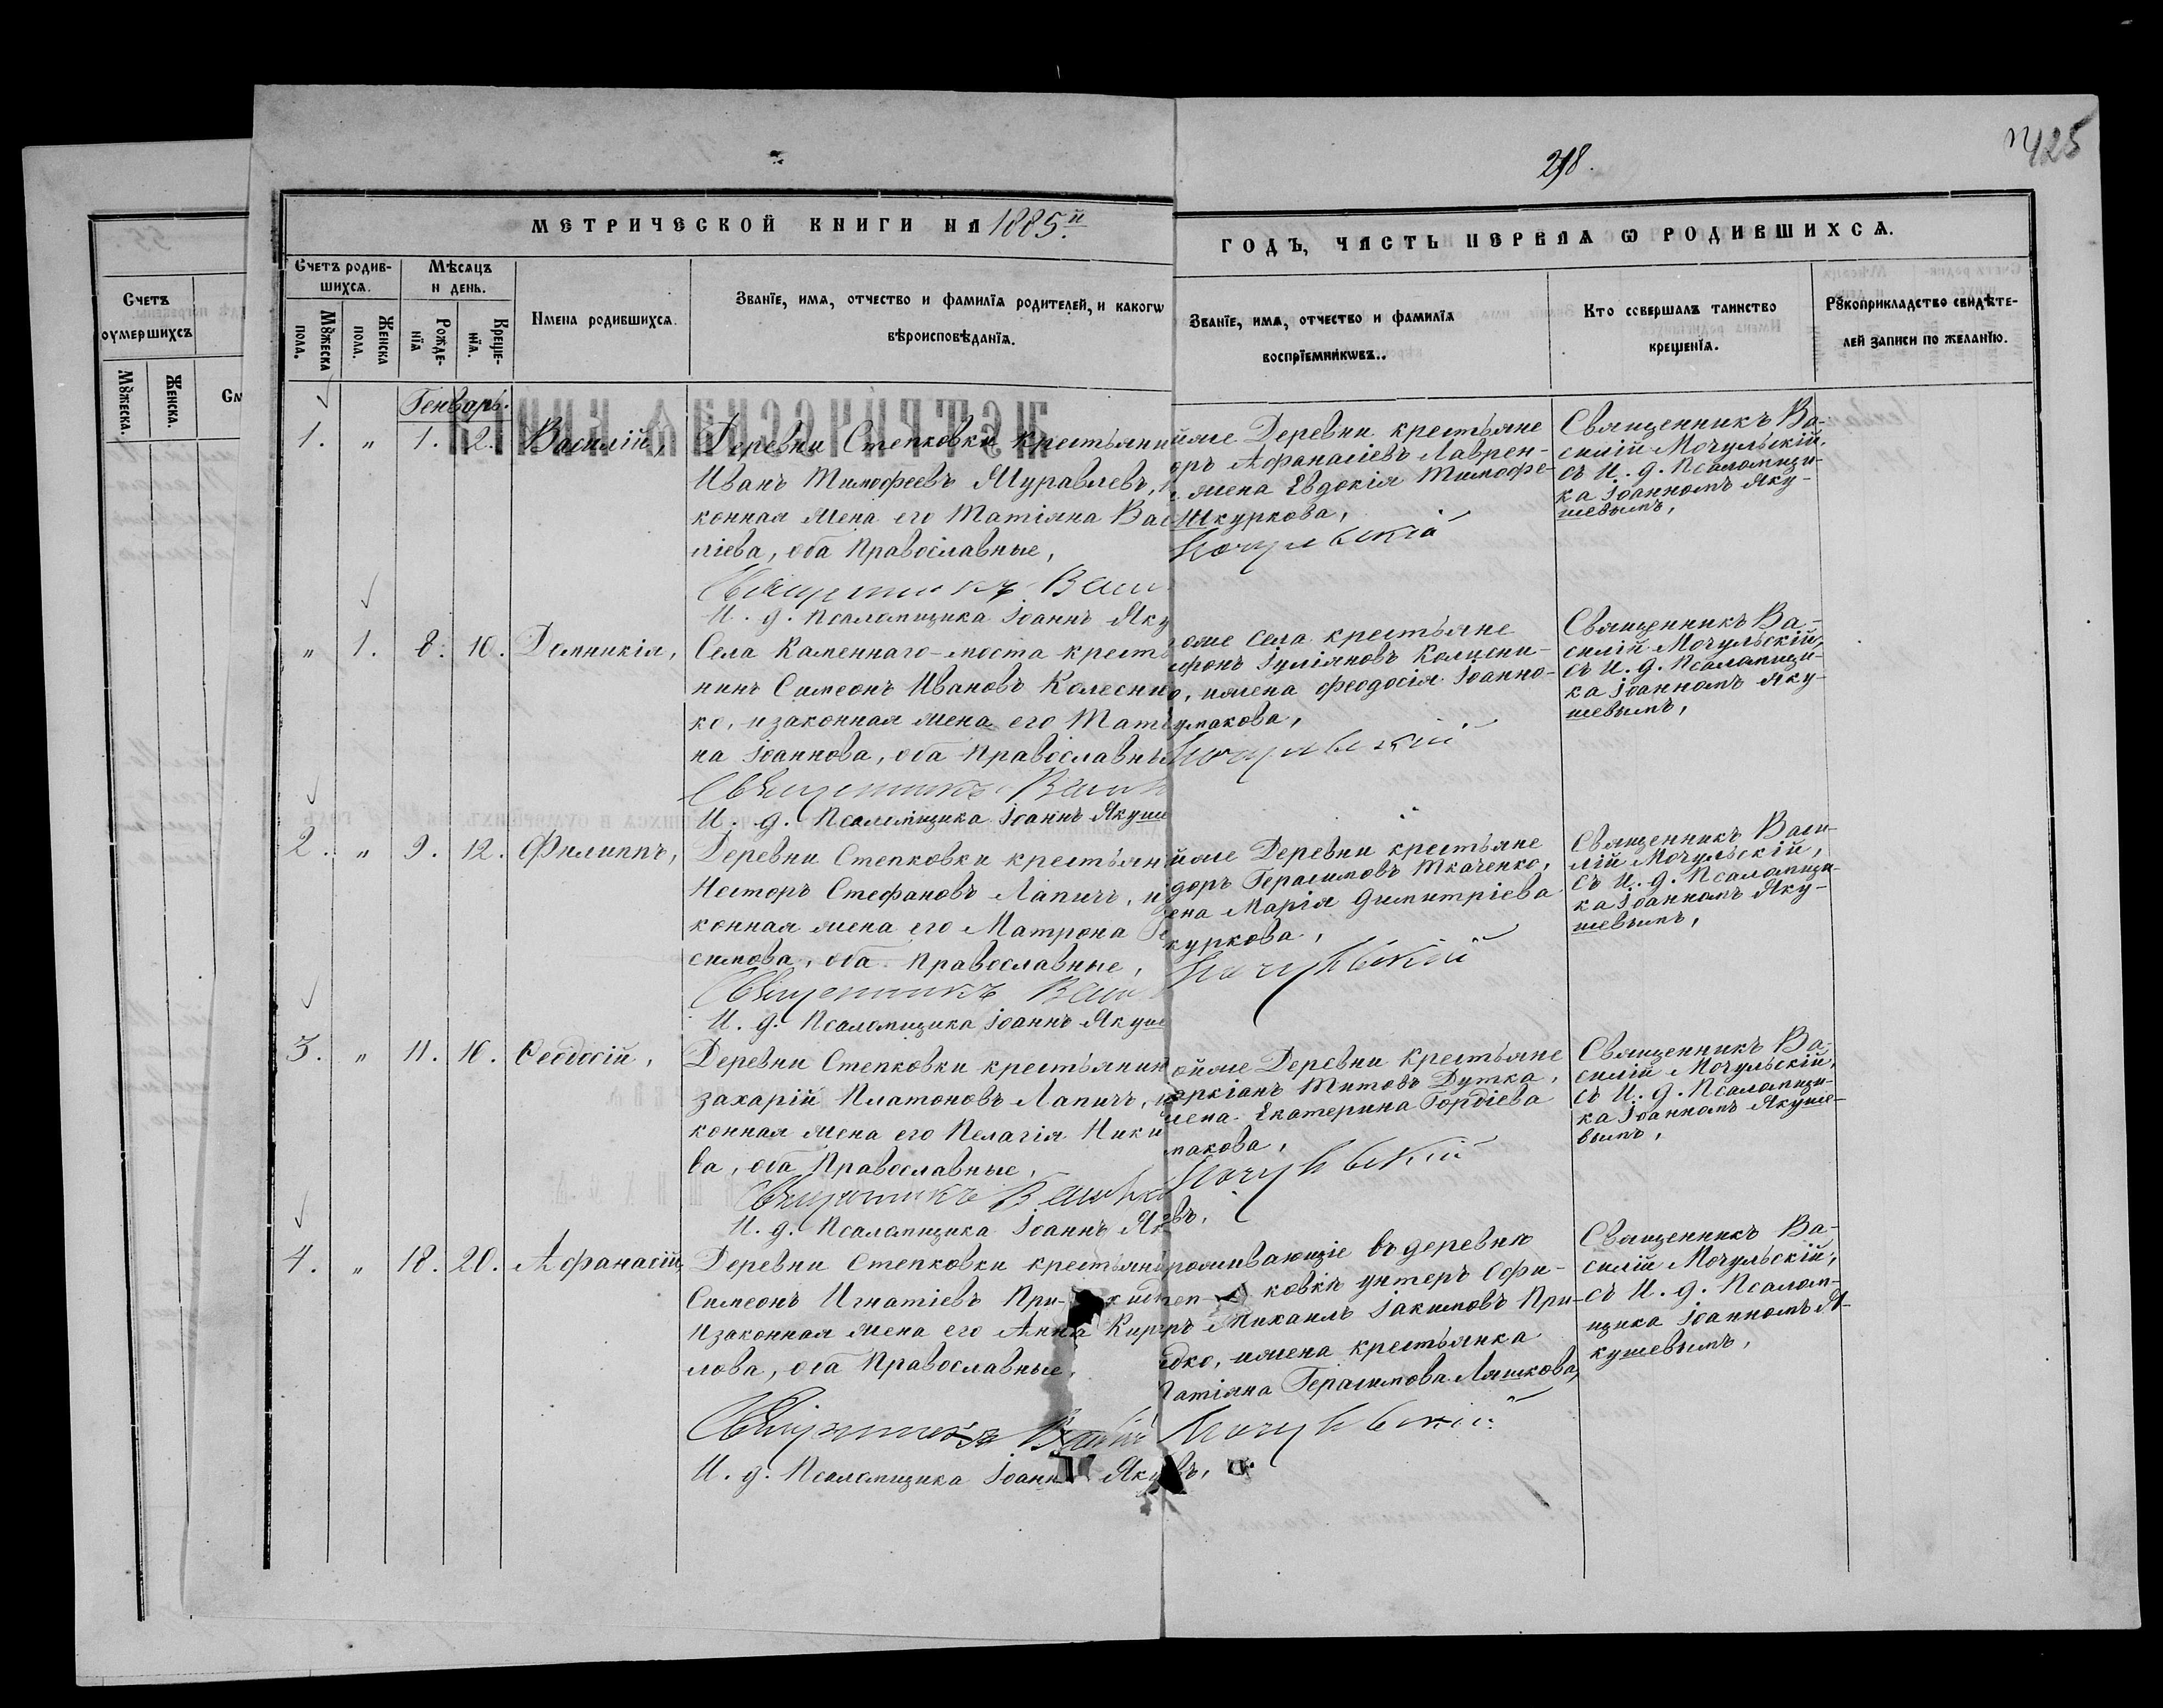 218.
425
МЕТРИЧЕСКОЙ КНИГИ НА 1885.й
ГОДЪ, ЧАСТЬ ПЕРВАЯ Ѡ РОДИВШИХСѦ.
Счетъ
оумершихъ
Мꙋжеска.
Женска.
Счетъ родив-
шихсѧ.
Мѣсѧцъ
и день.
Мꙋжеска
пола.
Женска
пола.
Рожде-
нїѧ
Креще-
нїѧ.
Имена родившихсѧ.
Званїе, имѧ, отчество и фамилїѧ родителей, и какогѡ
вѣроисповѣданїѧ.
Званїе, имѧ, отчество и фамилїѧ
воспрїемникѡвъ.
Кто совершалъ таинство
крещенїѧ.
Рꙋкоприкладство свидѣте-
лей записи по желанїю.
Генварь.
1. „ 1. 2. Василій,
Деревни Степковки крестьянин
Иванъ Тимофеевъ Муравлевъ,
конная жена его Татіяна Вас
ліева, оба Православные,
Священникъ Васи
И. д. Псаломщика Іоаннъ Яку
йже Деревни крестьяне
оръ Афанасіевъ Лаврен-
жена Евдокія Тимофе-
Шкуркова,
Мочульскій
Священникъ Ва-
силій Мочульскій,
съ И. д. Псаломщи-
ка Іоанномъ Яку-
шевымъ,
„ 1. 8. 10. Домникія,
Села Каменнаго-моста кресть
нинъ Симеонъ Ивановъ Колесни
ко, и законная жена его Тати
на Іоаннова, оба Православны
Священникъ Васи
И. д. Псаломщика Іоаннъ Якуш
оже села крестьяне
фонъ Іуліяновъ Колесни-
о, и жена Феодосія Іоанно-
умакова,
Мочульскій
Священникъ Ва-
силій Мочульскій,
съ И. д. Псаломщи-
ка Іоанномъ Яку-
шевымъ,
2. „ 9. 12. Филиппъ,
Деревни Степковки крестьян
Несторъ Стефановъ Лапичъ, и
конная жена его Матрона
симова, оба Православные,
Священникъ Васи
И. д. Псаломщика Іоаннъ Якуше
йже Деревни крестьяне
доръ Герасимовъ Ткаченко,
ена Марія Димитріева
куркова,
Мочульскій
Священникъ Васи-
лій Мочульскій,
съ И. д. Псаломщи-
ка Іоанномъ Яку-
шевымъ,
3. „ 11. 16. Ѳеодосій,
Деревни Степковки крестьянин
Захарій Платоновъ Лапичъ, и
конная жена его Пелагія Ники
ва, оба Православные,
Священникъ Васил
И. д. Псаломщика Іоаннъ Як
ойже Деревни крестьяне
аркіанъ Титовъ Дутка,
жена Екатерина Гордіева
макова,
Мочульскій
въ.
Священникъ Ва-
силій Мочульскій,
съ И. д. Псаломщи-
ка Іоанномъ Якуше-
вымъ,
4. „ 18. 20. Аѳанасій,
Деревни Степковки крестьяни
Симеонъ Игнатіевъ При-
И законная жена его Анна Кир
лова, оба Православные,
Священникъ Василій
И. д. Псаломщика Іоаннъ Яку
роживающіе въ деревни
ковки унтеръ Офи-
ръ Михаилъ Іакимовъ При-
дко, и жена крестьянка
Татіяна Герасимова Ляшкова,
Мочульскій
въ,
Священникъ Ва-
силій Мочульскій,
съ И. д. Псалом-
щика Іоанномъ Я-
кушевымъ,